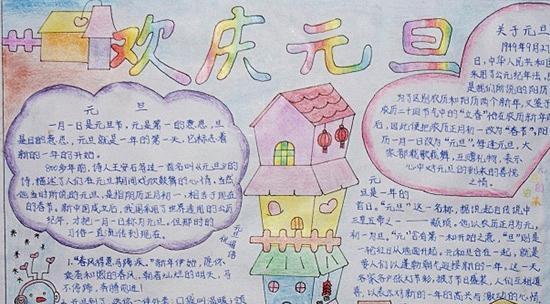 欢庆元旦
元 旦
一月一日是元旦节,元是第一的意思,旦
是日的意思,元旦就是一年的第一天,它标志着
新的一年的开始。
900多年前,诗人王安石写过一首名叫《元旦》的
诗,描述了人们在元旦期间欢欣鼓舞的心情。当然
他当时所说的元旦,是指阴历正月初一,相当于现在
的春节,新中国成立之后,我国采用了世界通用的公历
纪年,才把一月一日称为元旦,但那时的
习俗一直流传到现在。
元旦祝福语
1."春风得意马蹄疾",新年伊始,愿你
乘着和煦的春风,朝着灿烂的明天,马
不停蹄,奔腾前进!
关于元旦
1949年9月27
日,中华人民共和国
采用了公元纪年法,
是我们所说的阳历
为了区别农历和阳历两个新年,又鉴于
农历二十四节气中的"立春"恰在农历新年
后,因此便把农历正月初一改为"春节",阳
历一月一日改为"元旦"。每逢元旦,大
家都载歌载舞,互赠礼物,表示
心中对元旦的到来的喜悦
之情。
元
旦
是一年的
首日。"元旦"这一名称,据说起自传说中
三皇五帝之一——颛顼。他以农历正月为元,
初一为旦。"元"含有第一和开始之意,"旦"则是
一轮红日从地面升起。元和旦合在一起,就是
要人们以蓬勃朝气迎接新的一年。这一天